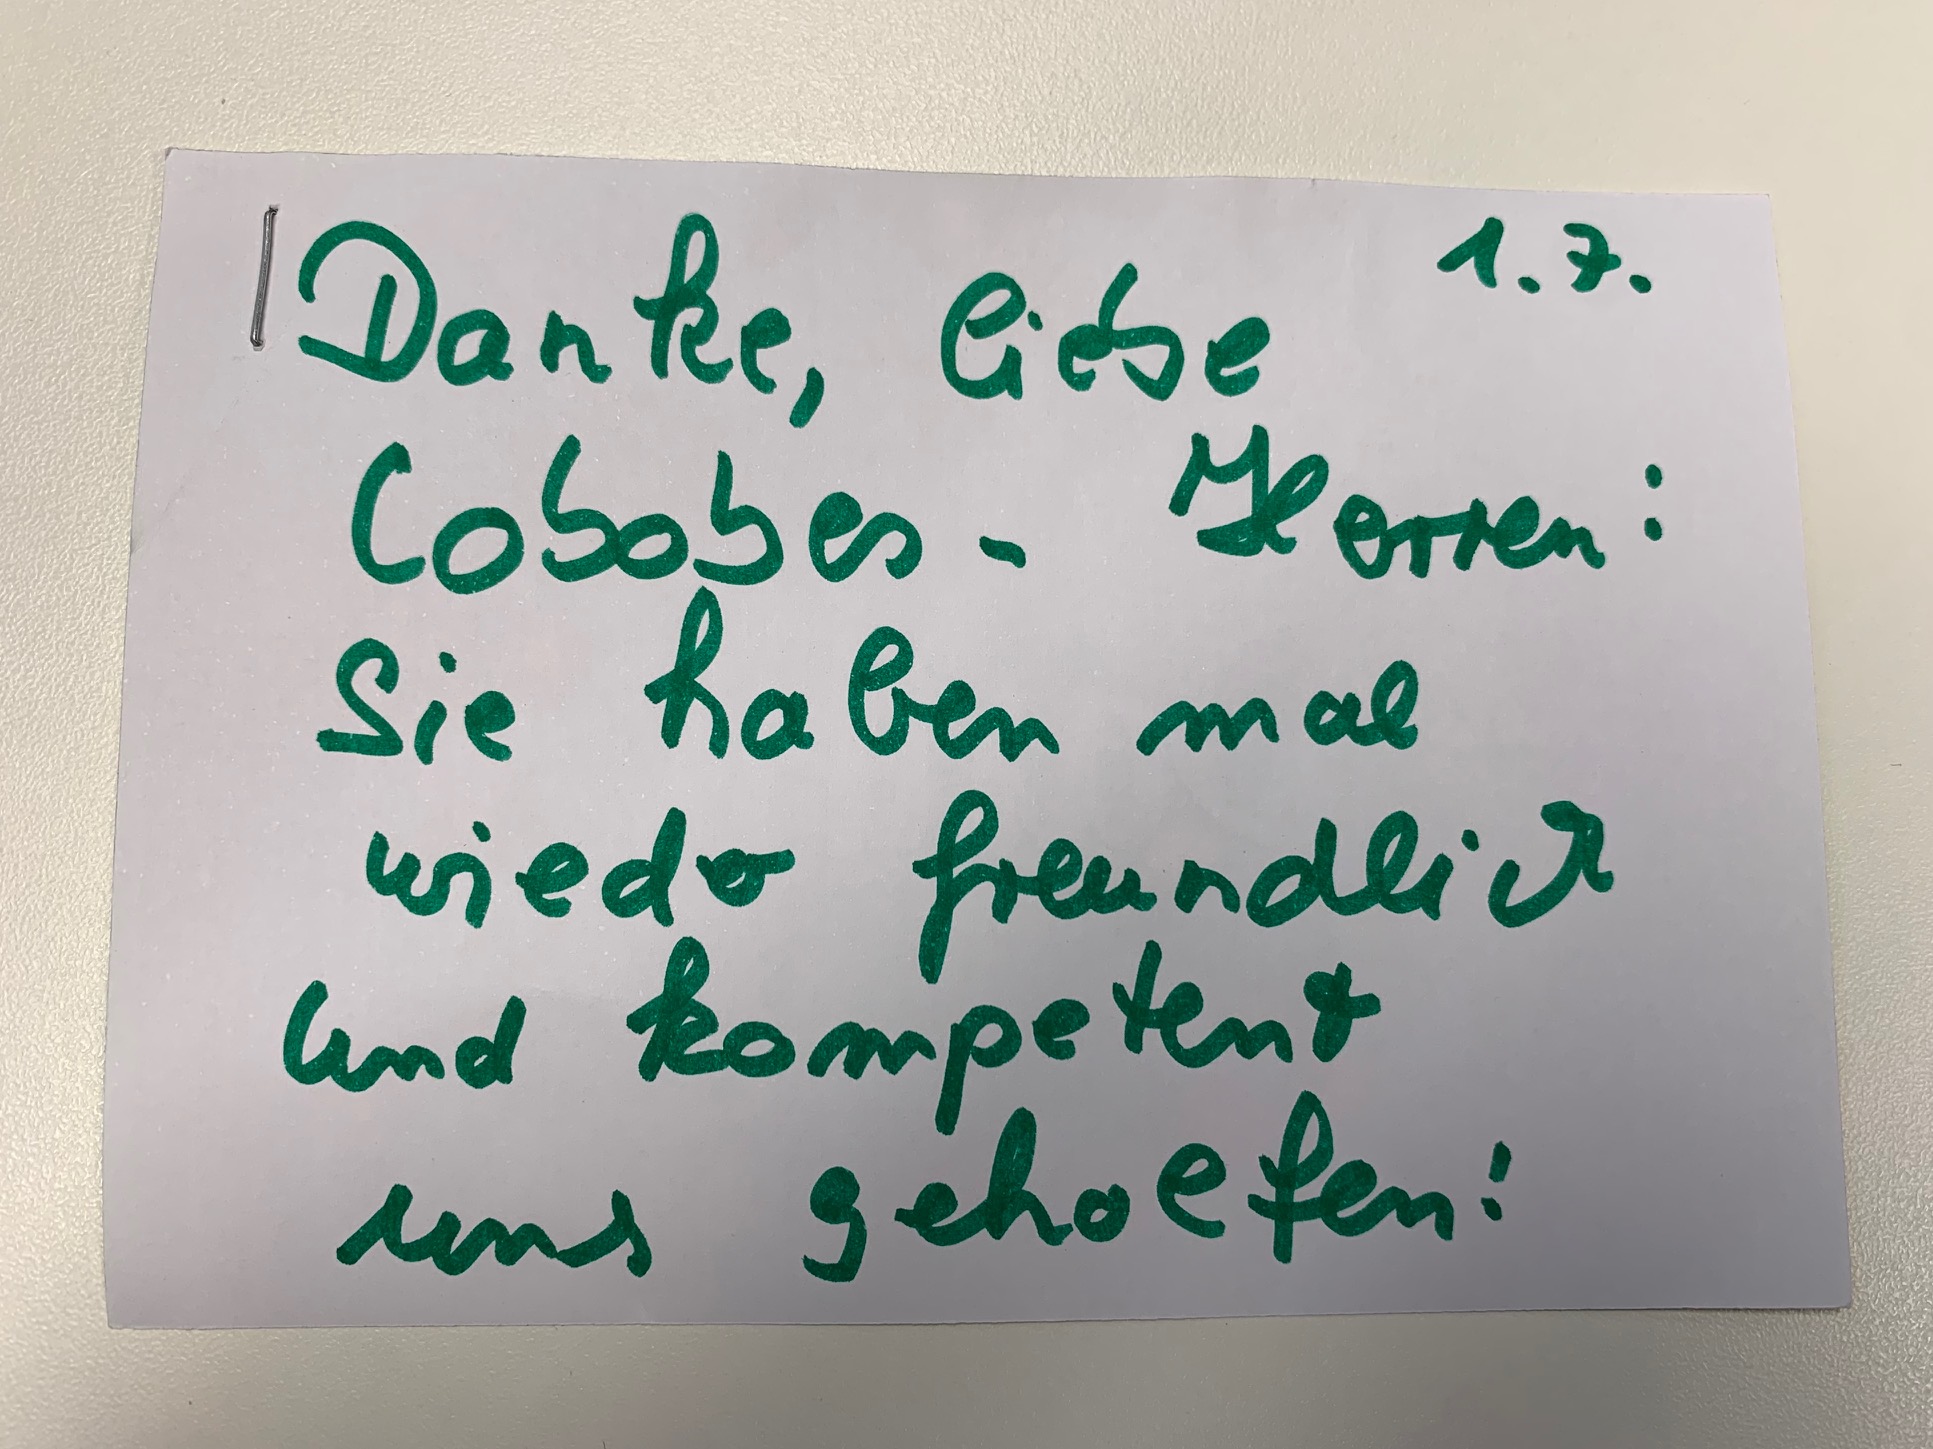 1.7.
Danke, liebe
Cobobes- Herren:
Sie haben mal
wieder freundlich
und kompetent
uns geholfen!